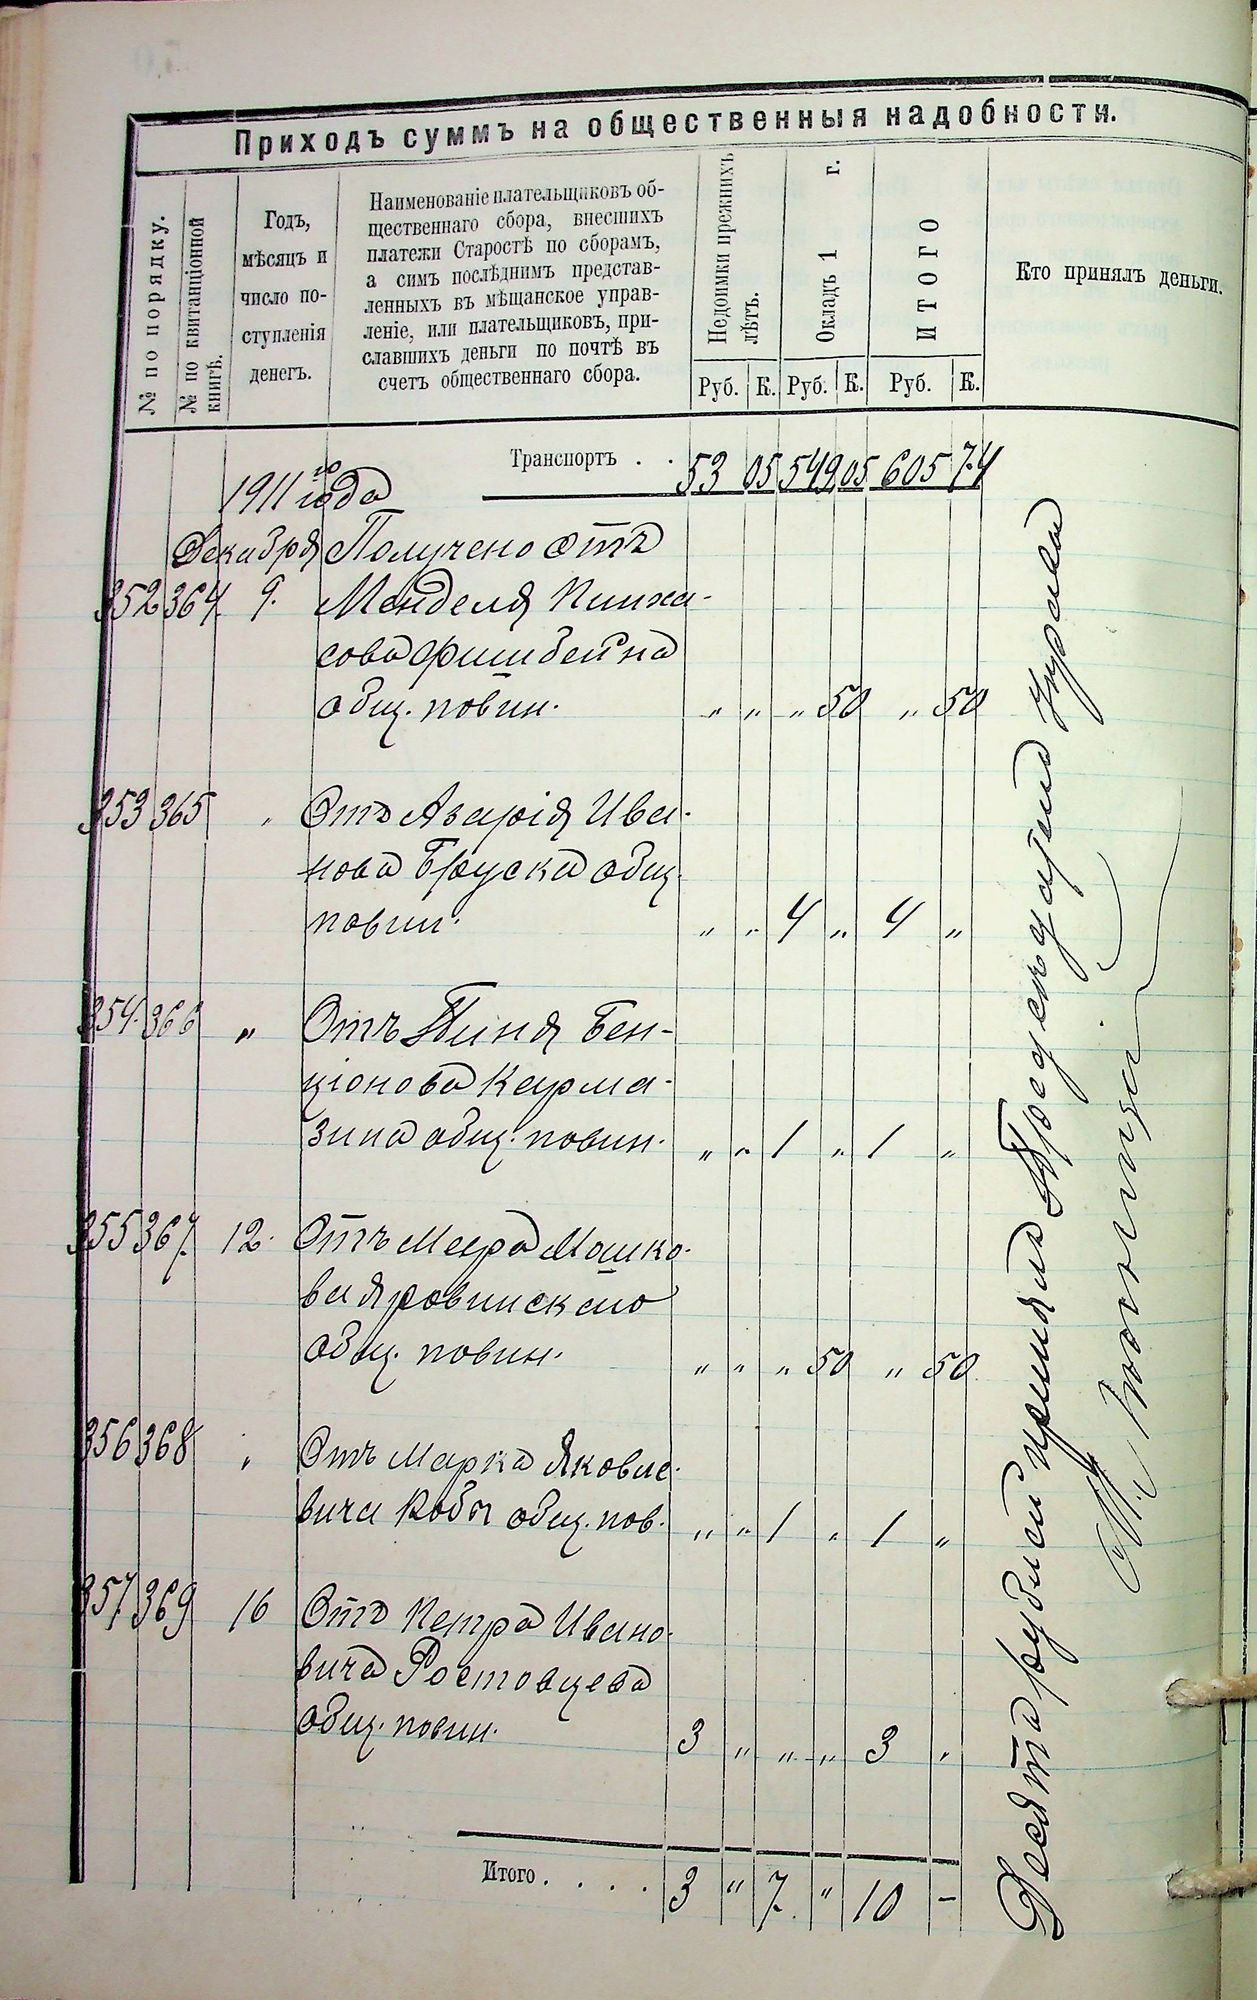 Приходъ суммъ на общественныя надобности.
№ по порядку.
№ по квитанціонной
книгѣ.
Годъ,
мѣсяцъ и
число по-
ступленія
денегъ.
Наименованіе плательщиковъ об-
щественнаго сбора, внесшихъ
платежи Старостѣ по сборамъ,
а симъ послѣднимъ представ-
ленныхъ въ мѣщанское управ-
леніе, или плательщиковъ, при-
славшихъ деньги по почтѣ въ
счетъ общественнаго сбора.
Недоимки прежнихъ
лѣтъ.
Окладъ 1 г.
ИТОГО
Кто принялъ деньги.
Руб. К. Руб. К. Руб. К.
Транспортъ . . 53 05 549 05 605 74
1911 го года
Декабря Получено отъ
352 364 9. Менделя Пинха-
сова Фишбейна
общ. повин. " " " 50 " 50
353 365 " Отъ Азарія Ива-
нова Бруска общ.
повин. " " 4 " 4 "
354 366 " Отъ Пиня Бен-
ціонова Карма-
зина общ. повин. " " 1 " 1 "
355 367 12. Отъ Меера Мошко-
ва Яровинскаго
общ. повин. " " " 50 " 50
356 368 " Отъ Марка Яковле-
вича Кобы общ. пов. " " 1 " 1 "
357 369 16 Отъ Петра Ивано-
вича Ростовцева
общ. повин. 3 " " " 3 "
Итого . . . . 3 " 7 " 10 –
Десять рублей принялъ Предсѣдатель Управы